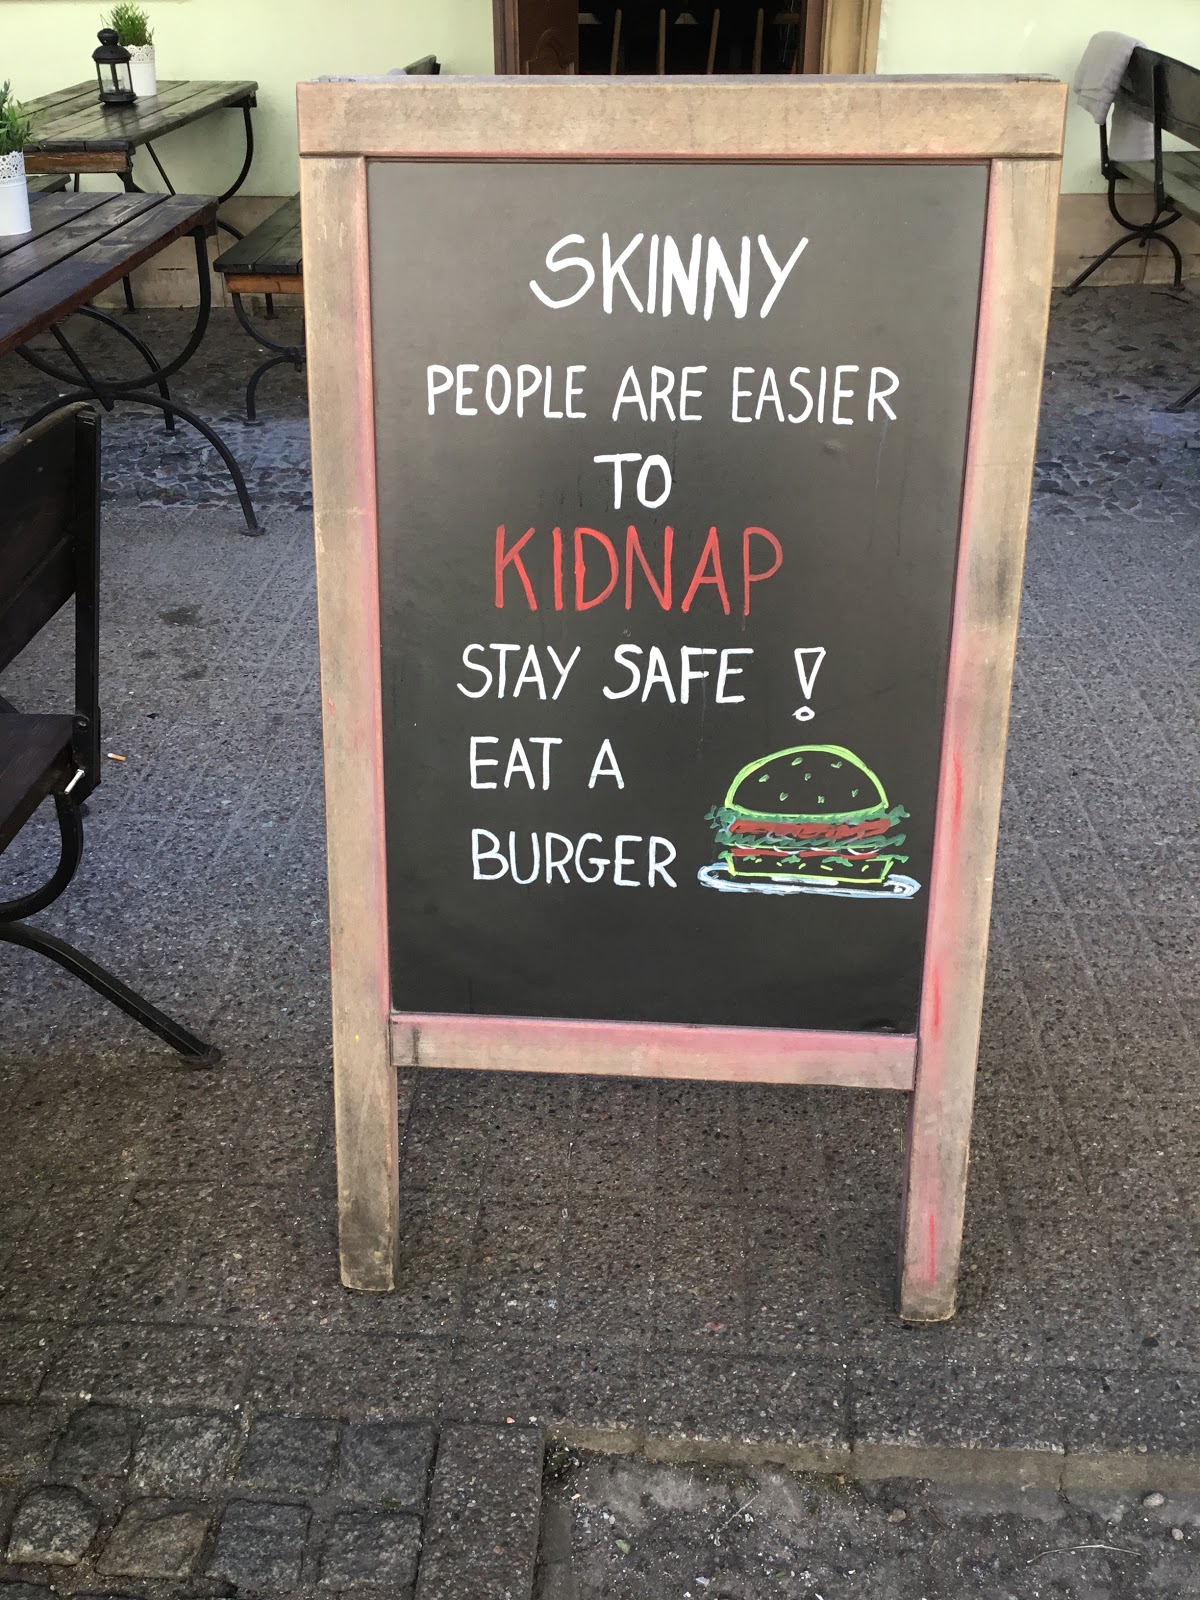 SKINNY
PEOPLE ARE EASIER
TO
KIDNAP
STAY SAFE !
EAT A
BURGER